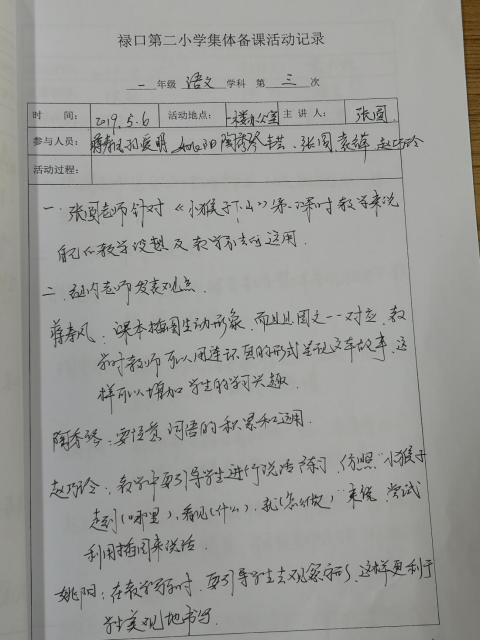 禄口第二小学集体备课活动记录
一 年级 语文 学科 第 三 次
时 间： 2019.5.6 活动地点： 一楼办公室 主讲人： 张圆
参与人员： 蒋春风 姚阳 陶秀琴 张圆 袁 赵乃玲
活动过程：
一、张圆老师针对《小猴子下山》第一课时教学来说
自己的教学设想及教学方法的运用。
二、组内老师发表观点。
蒋春风：课本插图生动形象，而且且图文一一对应，教
学时教师可以用连环画的形式呈现这个故事，这
样可以增加学生的学习兴趣。
陶秀琴：要注意词语的积累和运用。
赵乃玲：教学中要引导学生进行说话练习，仿照"小猴子
走到(哪里)，看见(什么)，就(怎么做)"来说，尝试
利用插图来说话。
姚阳：在教学写字时，要引导学生去观察字，这样更利于
学生美观地书写。